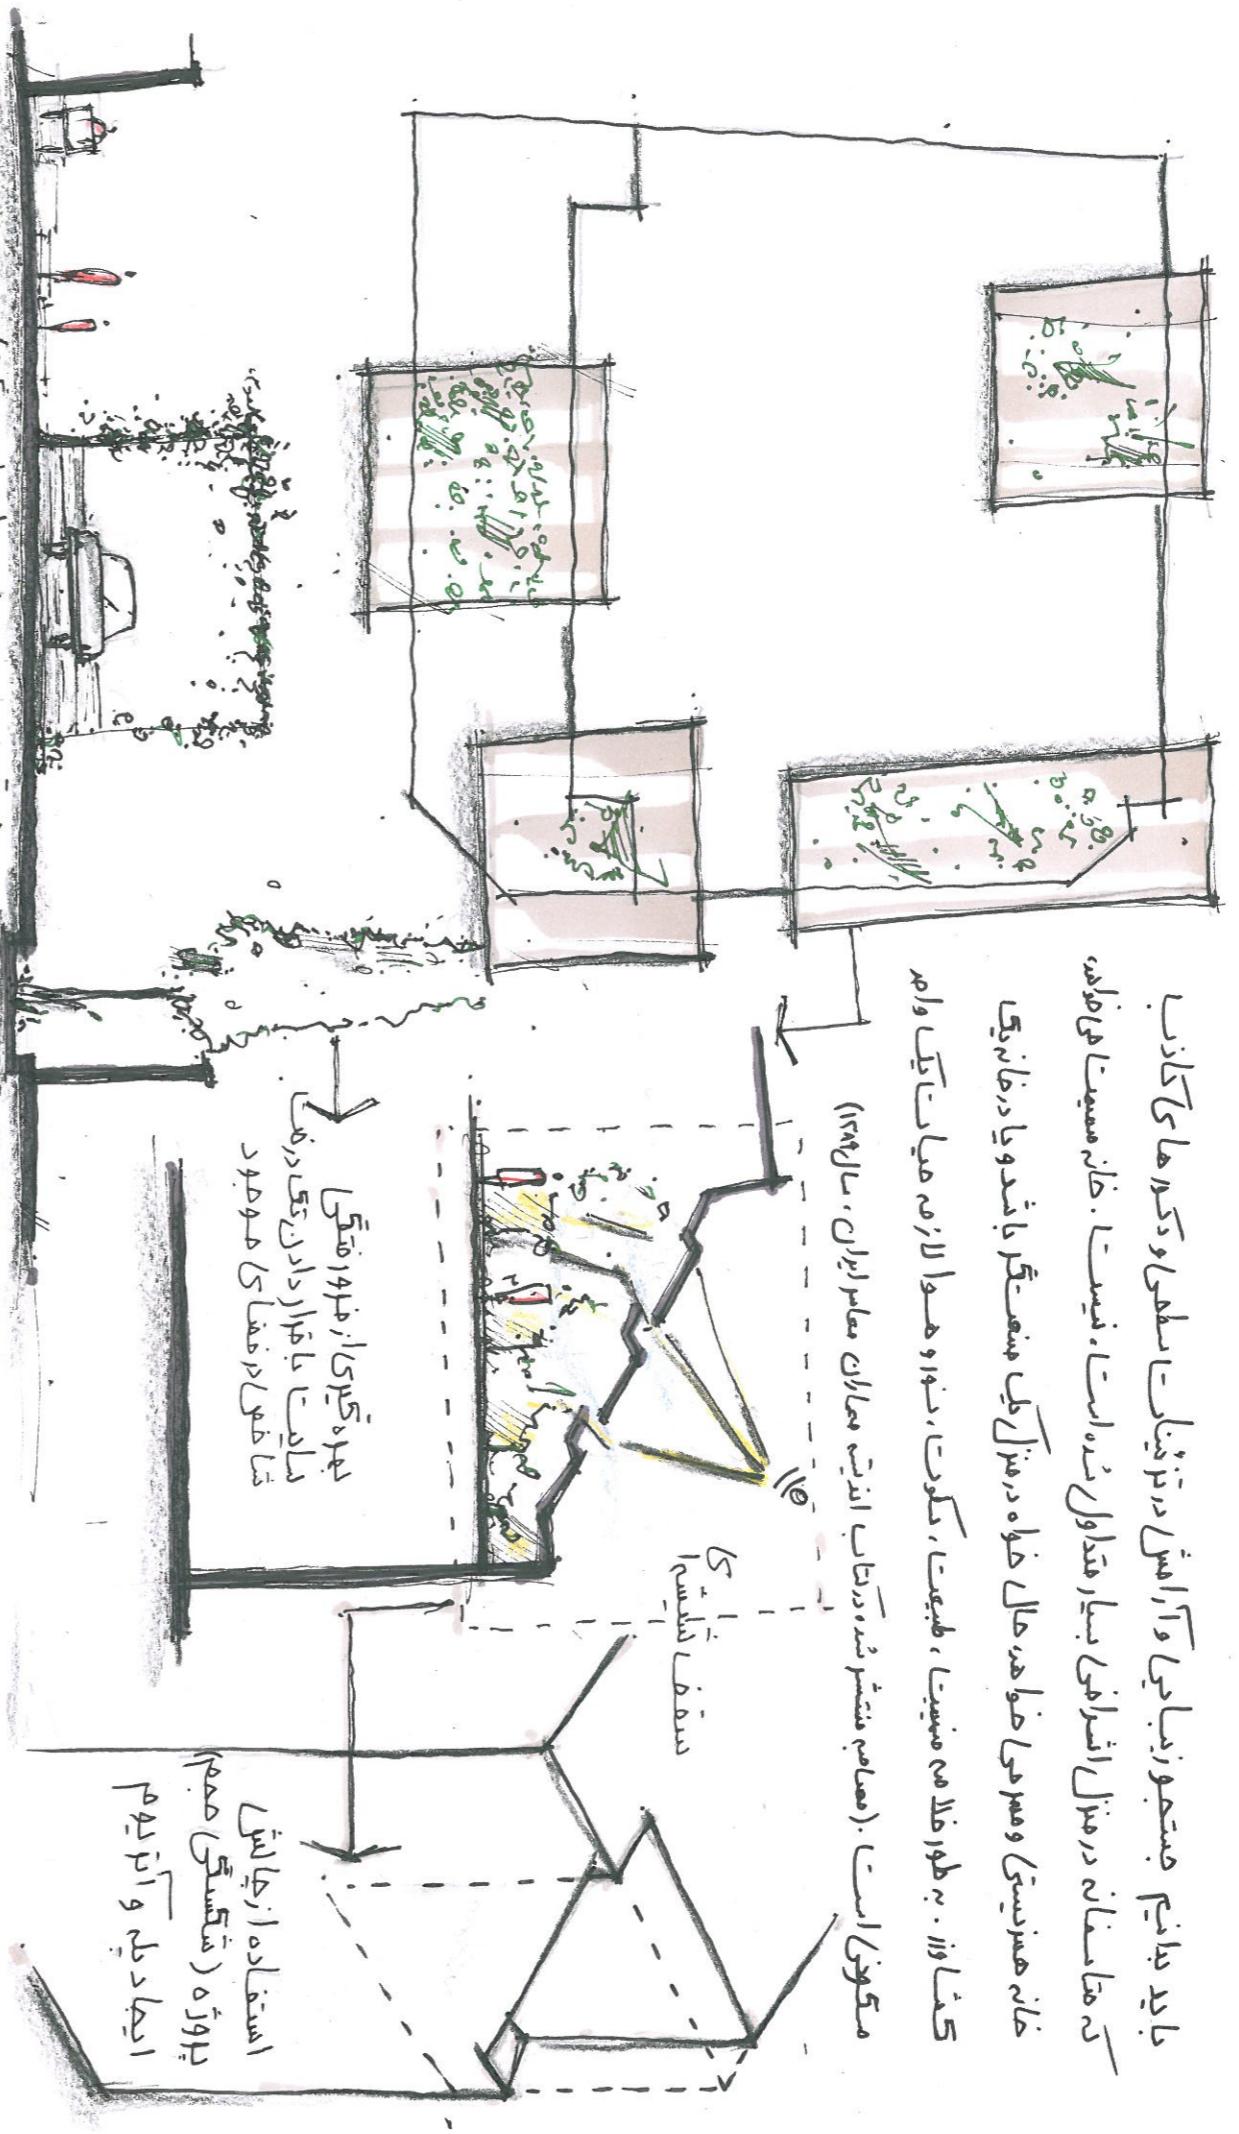 باید بدانیم جستجو زیبایی و آرامش در تزئینات سطحی و دکورهای کاذب
که متاسفانه در منزل اشرافی بسیار متداول شده است، نیست. خانه صمیمیت می‌خواهد،
خانه همزیستی و همدمی خواهد، حال خواه در منزل یک صنعتگر باشد و یا در خانه یک
کشاورز. به طور خلاصه صمیمیت، طبیعت، سکوت، نور و هوا لازمه حیات یک واحد
مسکونی است. (مصاحبه منتشر شده در کتاب اندیشه معماران معاصر ایران، سال ۱۳۸۹)
سقف شیشه‌ای
بهره‌گیری از فرورفتگی
سایت با قرار دادن تک درخت
شاخص در فضای موجود
استفاده از چالش
پروژه (شکستگی حجم)
ایجاد پله و آتریوم